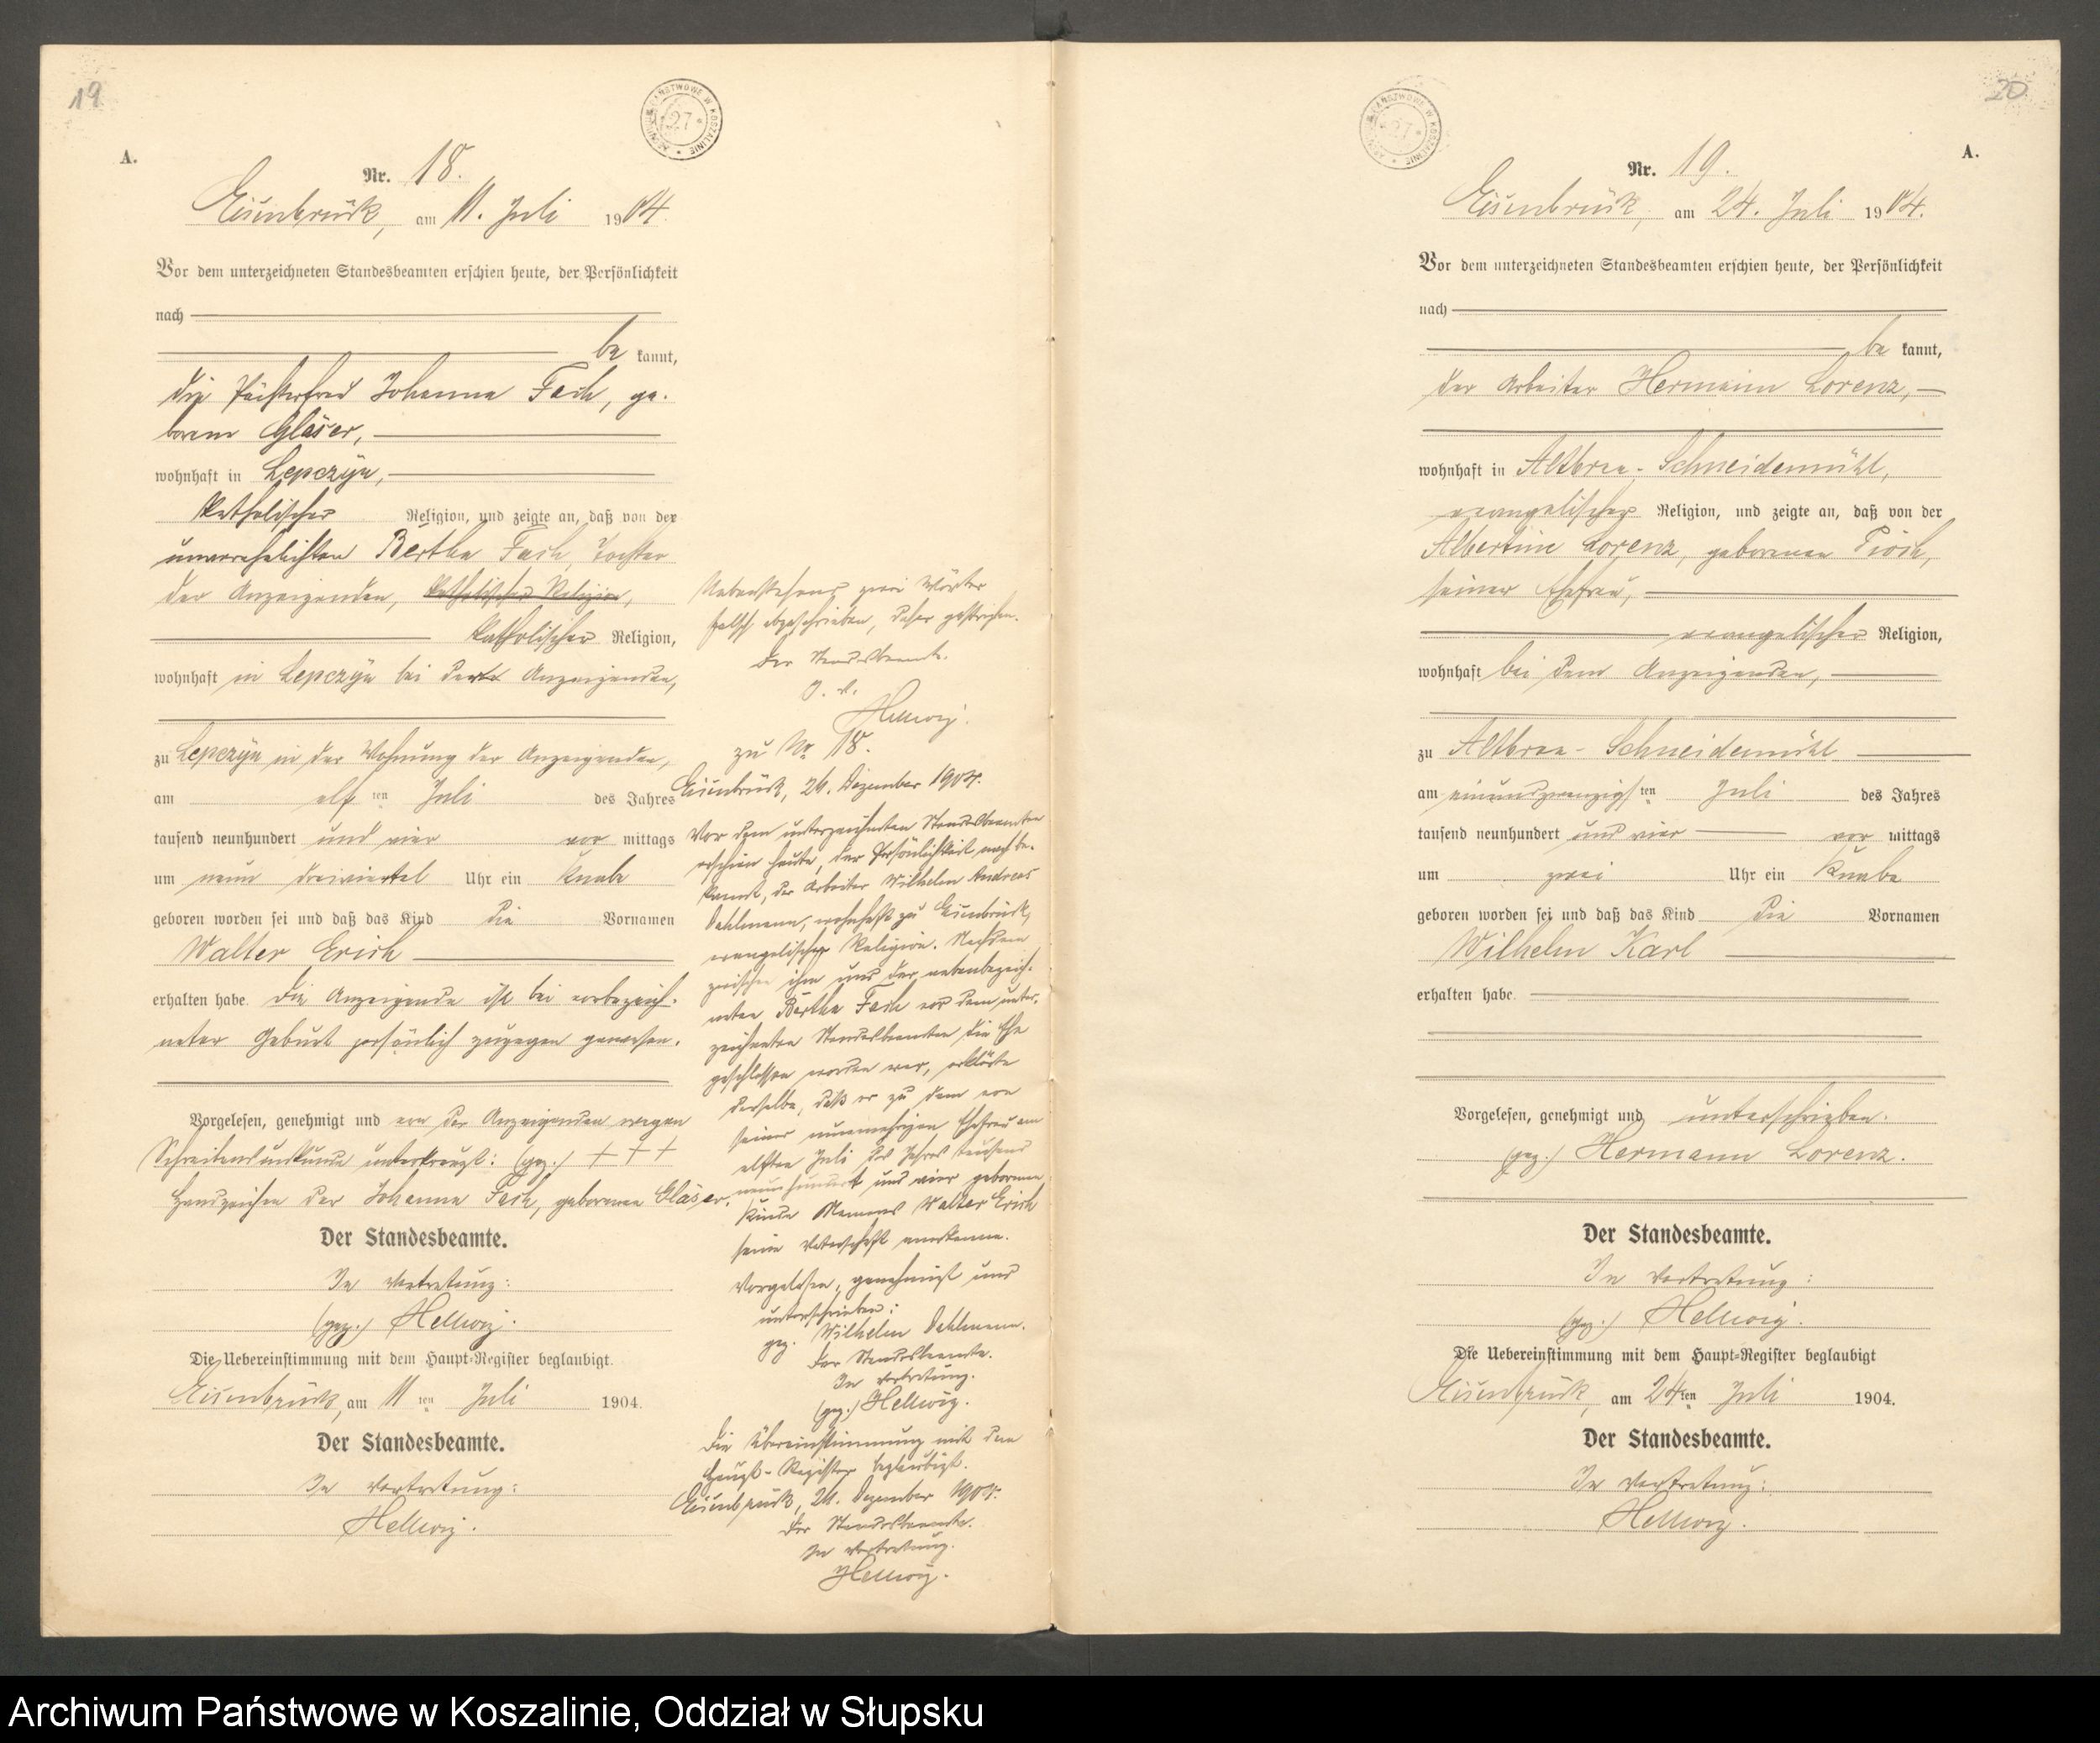 19
ARCHIWUM PAŃSTWOWE W KOSZALINIE
27
A.
Nr. 18.
Eisenbrück, am 11. Juli 1904.
Vor dem unterzeichneten Standesbeamten erschien heute, der Persönlichkeit
nach
be kannt,
die Johanna Fach, ge-
borene Gläser,
wohnhaft in Lepczyn,
katholischer Religion, und zeigte an, daß von der
unverehelichten Bertha Fach, Tochter
der Anzeigenden, katholischer Religion,
katholischer Religion,
wohnhaft in Lepczyn bei der Anzeigenden,
zu Lepczyn in der Wohnung der Anzeigenden,
am elften Juli des Jahres
tausend neunhundert und vier vor mittags
um neun dreiviertel Uhr ein Knabe
geboren worden sei und daß das Kind die Vornamen
Walter Erich
erhalten habe. Die Anzeigende ist bei vorbezeich-
neter Geburt persönlich zugegen gewesen.
Vorgelesen, genehmigt und von der Anzeigenden wegen
Schreibensunkunde unterkreuzt: (gez.) + + +
Handzeichen der Johanna Fach, geborenen Gläser.
Der Standesbeamte.
In Vertretung:
(gez.) Hellwig.
Die Uebereinstimmung mit dem Haupt-Register beglaubigt.
Eisenbrück, am 11ten Juli 1904.
Der Standesbeamte.
In Vertretung:
Hellwig.
Nebenstehend zwei Wörter
falsch abgeschrieben, daher gestrichen.
Der Standesbeamte.
J. V.
Hellwig.
zu Nr. 18.
Eisenbrück, 24. Dezember 1904.
Vor dem unterzeichneten Standesbeamten
erschien heute, der Persönlichkeit nach be-
kannt, der Arbeiter Wilhelm Andreas
Dahlmann, wohnhaft zu Eisenbrück,
evangelischer Religion. Nachdem
zwischen ihm und der nebenbezeich-
neten Bertha Fach vor dem unter-
zeichneten Standesbeamten die Ehe
geschlossen worden war, erklärte
derselbe, daß er zu dem von
seiner nunmehrigen Ehefrau am
elften Juli des Jahres tausend
neunhundert und vier geborenen
Kinde Namens Walter Erich
seine Vaterschaft anerkenne.
Vorgelesen, genehmigt und
unterschrieben:
gez. Wilhelm Dahlmann.
Der Standesbeamte.
In Vertretung.
(gez.) Hellwig.
Die Übereinstimmung mit dem
Haupt-Register beglaubigt.
Eisenbrück, 24. Dezember 1904.
Der Standesbeamte.
In Vertretung.
Hellwig.
20
ARCHIWUM PAŃSTWOWE W KOSZALINIE
27
A.
Nr. 19.
Eisenbrück, am 24. Juli 1904.
Vor dem unterzeichneten Standesbeamten erschien heute, der Persönlichkeit
nach
be kannt,
der Arbeiter Hermann Lorenz,
wohnhaft in Altbraa-Schneidemühl,
evangelischer Religion, und zeigte an, daß von der
Albertine Lorenz, geborenen Pioch,
seiner Ehefrau,
evangelischer Religion,
wohnhaft bei dem Anzeigenden,
zu Altbraa-Schneidemühl
am einundzwanzigsten Juli des Jahres
tausend neunhundert und vier vor mittags
um zwei Uhr ein Knabe
geboren worden sei und daß das Kind die Vornamen
Wilhelm Karl
erhalten habe.
Vorgelesen, genehmigt und unterschrieben.
(gez.) Hermann Lorenz.
Der Standesbeamte.
In Vertretung:
(gez.) Hellwig.
Die Uebereinstimmung mit dem Haupt-Register beglaubigt
Eisenbrück, am 24ten Juli 1904.
Der Standesbeamte.
In Vertretung:
Hellwig.
Archiwum Państwowe w Koszalinie, Oddział w Słupsku